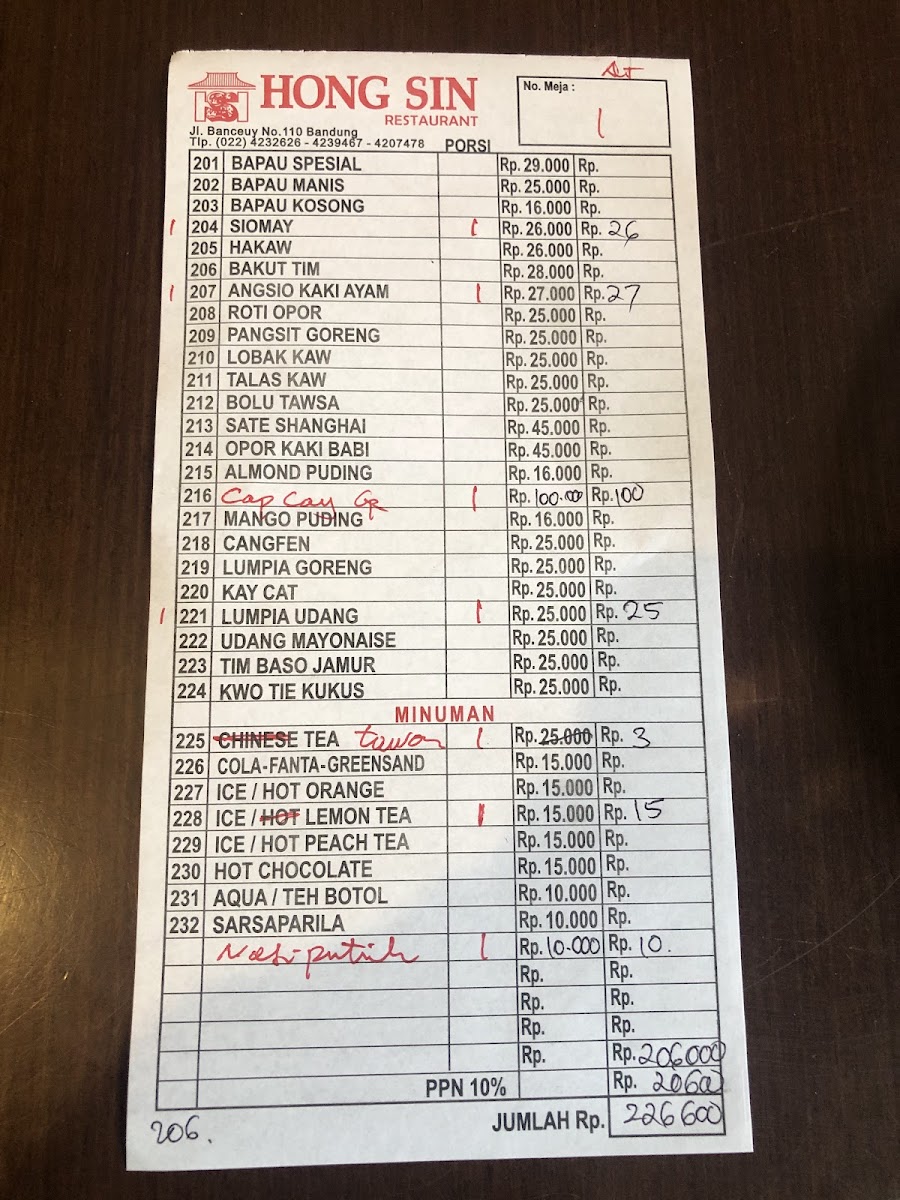 HONG SIN
RESTAURANT
Jl. Banceuy No.110 Bandung
Tlp. (022) 4232626 - 4239467 - 4207478
No. Meja :
1
PORSI
201 BAPAU SPESIAL Rp. 29.000 Rp.
202 BAPAU MANIS Rp. 25.000 Rp.
203 BAPAU KOSONG Rp. 16.000 Rp.
1 204 SIOMAY 1 Rp. 26.000 Rp. 26
205 HAKAW Rp. 26.000 Rp.
206 BAKUT TIM Rp. 28.000 Rp.
1 207 ANGSIO KAKI AYAM 1 Rp. 27.000 Rp. 27
208 ROTI OPOR Rp. 25.000 Rp.
209 PANGSIT GORENG Rp. 25.000 Rp.
210 LOBAK KAW Rp. 25.000 Rp.
211 TALAS KAW Rp. 25.000 Rp.
212 BOLU TAWSA Rp. 25.000 Rp.
213 SATE SHANGHAI Rp. 45.000 Rp.
214 OPOR KAKI BABI Rp. 45.000 Rp.
215 ALMOND PUDING Rp. 16.000 Rp.
216 Cap Cay Gr 1 Rp. 100.000 Rp. 100
217 MANGO PUDING Rp. 16.000 Rp.
218 CANGFEN Rp. 25.000 Rp.
219 LUMPIA GORENG Rp. 25.000 Rp.
220 KAY CAT Rp. 25.000 Rp.
1 221 LUMPIA UDANG 1 Rp. 25.000 Rp. 25
222 UDANG MAYONAISE Rp. 25.000 Rp.
223 TIM BASO JAMUR Rp. 25.000 Rp.
224 KWO TIE KUKUS Rp. 25.000 Rp.
MINUMAN
225 CHINESE TEA tawar 1 Rp. 25.000 Rp. 3
226 COLA-FANTA-GREENSAND Rp. 15.000 Rp.
227 ICE / HOT ORANGE Rp. 15.000 Rp.
228 ICE / HOT LEMON TEA 1 Rp. 15.000 Rp. 15
229 ICE / HOT PEACH TEA Rp. 15.000 Rp.
230 HOT CHOCOLATE Rp. 15.000 Rp.
231 AQUA / TEH BOTOL Rp. 10.000 Rp.
232 SARSAPARILA Rp. 10.000 Rp.
Nasi putih 1 Rp. 10.000 Rp. 10.
Rp. Rp.
Rp. Rp.
Rp. Rp.
Rp. Rp. 206000
PPN 10% Rp. 20600
JUMLAH Rp. 226600
206.